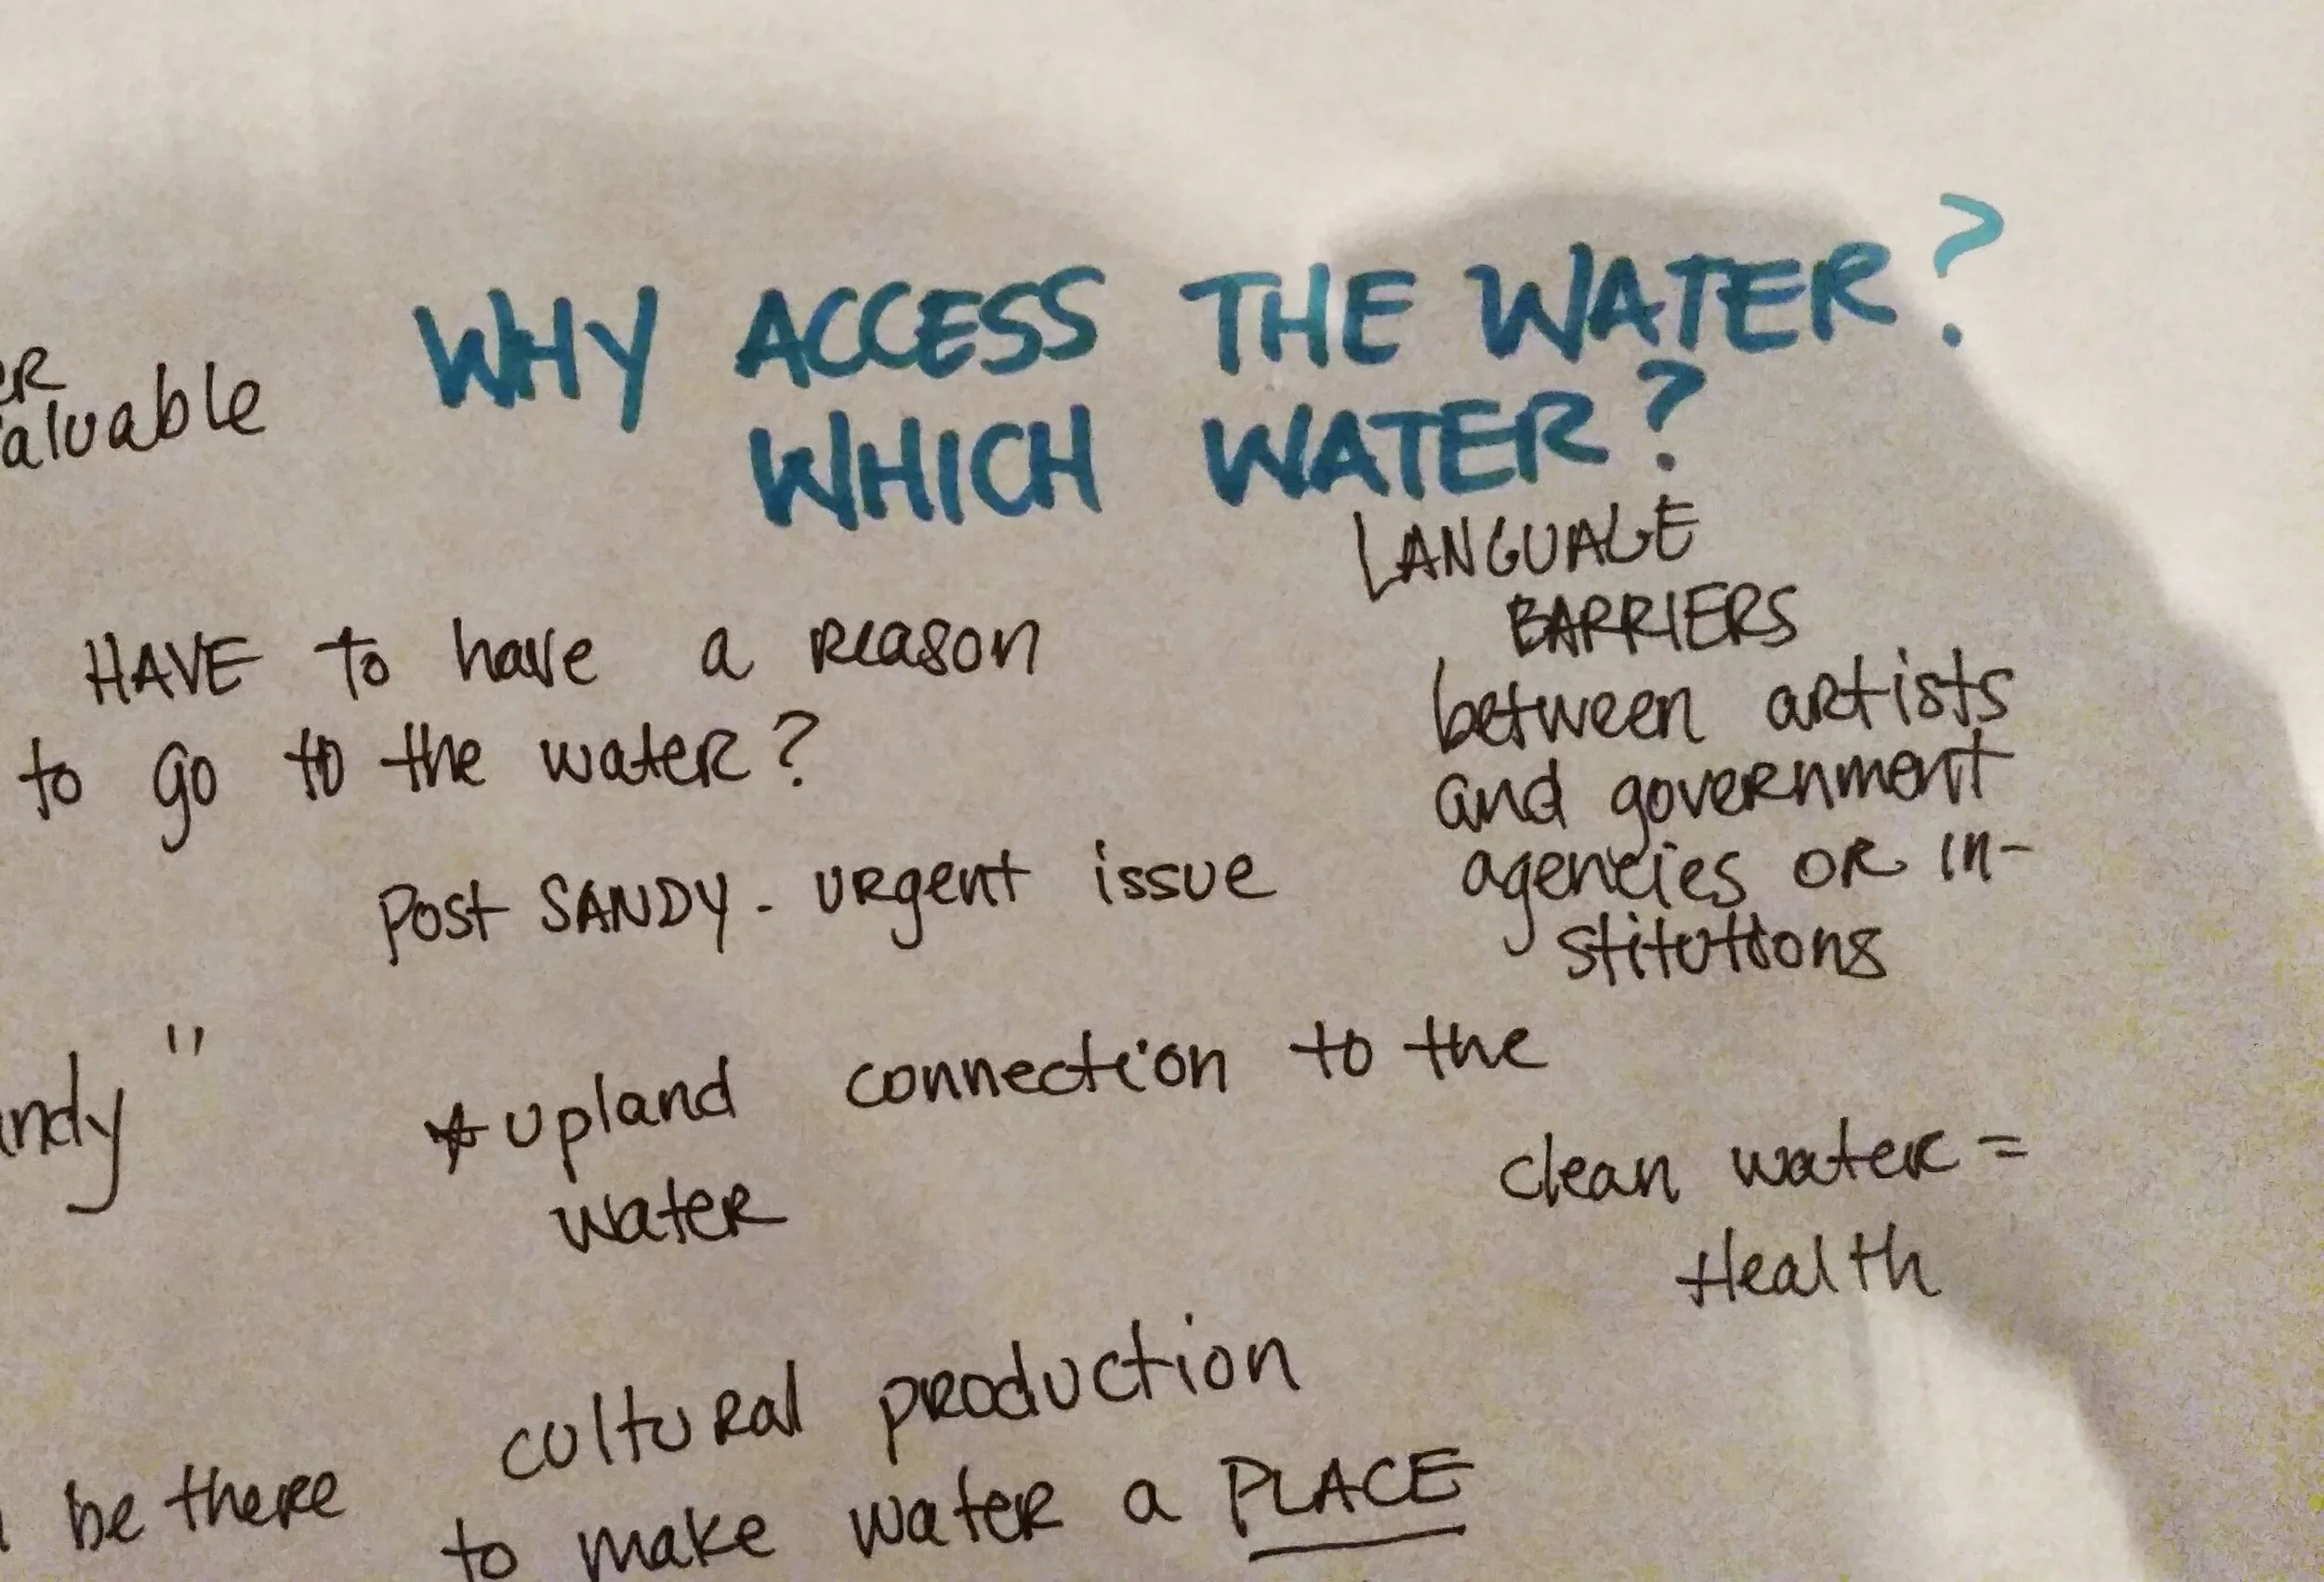 WHY ACCESS THE WATER?
WHICH WATER?
HAVE to have a reason
to go to the water?
Post SANDY - urgent issue
LANGUAGE
BARRIERS
between artists
and government
agencies OR in-
stitutions
*upland connection to the
water
clean water =
Health
cultural production
be there
to make water a PLACE